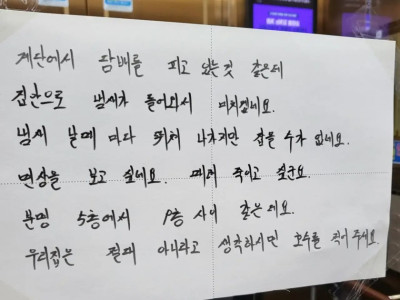 계단에서 담배를 피고 있는것 같은데
집안으로 냄새가 들어와서 미치겠네요.
냄새 날때 마다 뛰쳐 나가지만 잡을 수가 없네요.
면상을 보고 싶네요. 때려 죽이고 싶군요.
분명 5층에서 9층 사이 같은데요.
우리집은 절때 아니라고 생각하시면 호수를 적어 주세요.